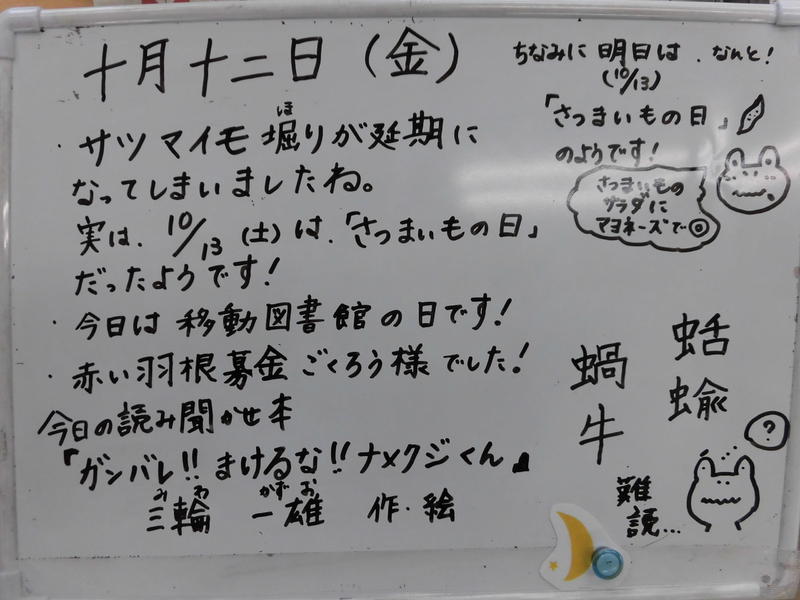 十月十二日（金）
・サツマイモ堀りが延期に
ほ
なってしまいましたね。
実は、10/13（土）は、「さつまいもの日」
だったようです！
・今日は移動図書館の日です！
・赤い羽根募金ごくろう様でした！
今日の読み聞かせ本
『ガンバレ!!まけるな!!ナメクジくん』
みわ かずお
三輪 一雄 作・絵
ちなみに明日は、なんと！
(10/13)
「さつまいもの日」
のようです！
さつまいもの
サラダに
マヨネーズで◎
蛞蝓
蝸牛
?
難読...